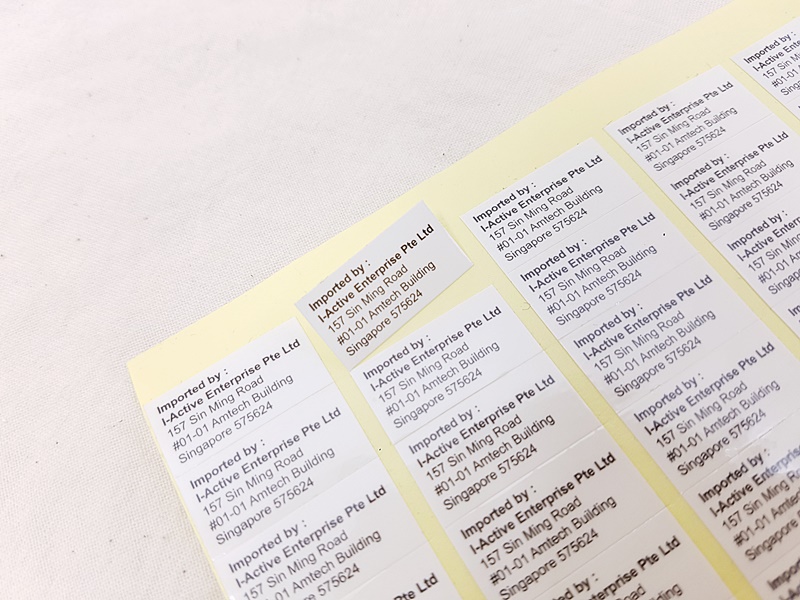 Imported by :
I-Active Enterprise Pte Ltd
157 Sin Ming Road
#01-01 Amtech Building
Singapore 575624
Imported by :
I-Active Enterprise Pte Ltd
157 Sin Ming Road
#01-01 Amtech Building
Singapore 575624
Imported by :
I-Active Enterprise Pte Ltd
157 Sin Ming Road
#01-01 Amtech Building
Singapore 575624
Pte Ltd
Imported by :
I-Active Enterprise Pte Ltd
157 Sin Ming Road
#01-01 Amtech Building
Singapore 575624
Imported by :
I-Active Enterprise Pte Ltd
157 Sin Ming Road
#01-01 Amtech Building
Singapore 575624
Imported by :
I-Active Enterprise Pte Ltd
157 Sin Ming Road
#01-01 Amtech Building
Singapore 575624
Imported by :
I-Active Enterprise Pte Ltd
157 Sin Ming Road
#01-01 Amtech Building
Singapore 575624
Imported by :
Enterprise Pte Ltd
Imported by :
I-Active Enterprise Pte Ltd
157 Sin Ming Road
#01-01 Amtech Building
Singapore 575624
Imported by :
I-Active Enterprise Pte Ltd
157 Sin Ming Road
#01-01 Amtech Building
Singapore 575624
Imported by :
I-Active Enterprise Pte Ltd
157 Sin Ming Road
#01-01 Amtech Building
Singapore 575624
Imported by :
I-Active Enterprise Pte Ltd
157 Sin Ming Road
#01-01 Amtech Building
Singapore 575624
Imported by :
I-Active Enterprise
157 Sin Ming
#01-01 Amtech
Singapore
Imported by :
I-Active Enterprise Pte Ltd
157 Sin Ming Road
#01-01 Amtech Building
Singapore 575624
Imported by :
I-Active Enterprise
157 Sin Ming Road
#01-01 Amtech
Singapore 575624
Imported by :
I-Active
157 Sin Ming
#01-01
Singapore
Imported by :
I-Active
157 Sin